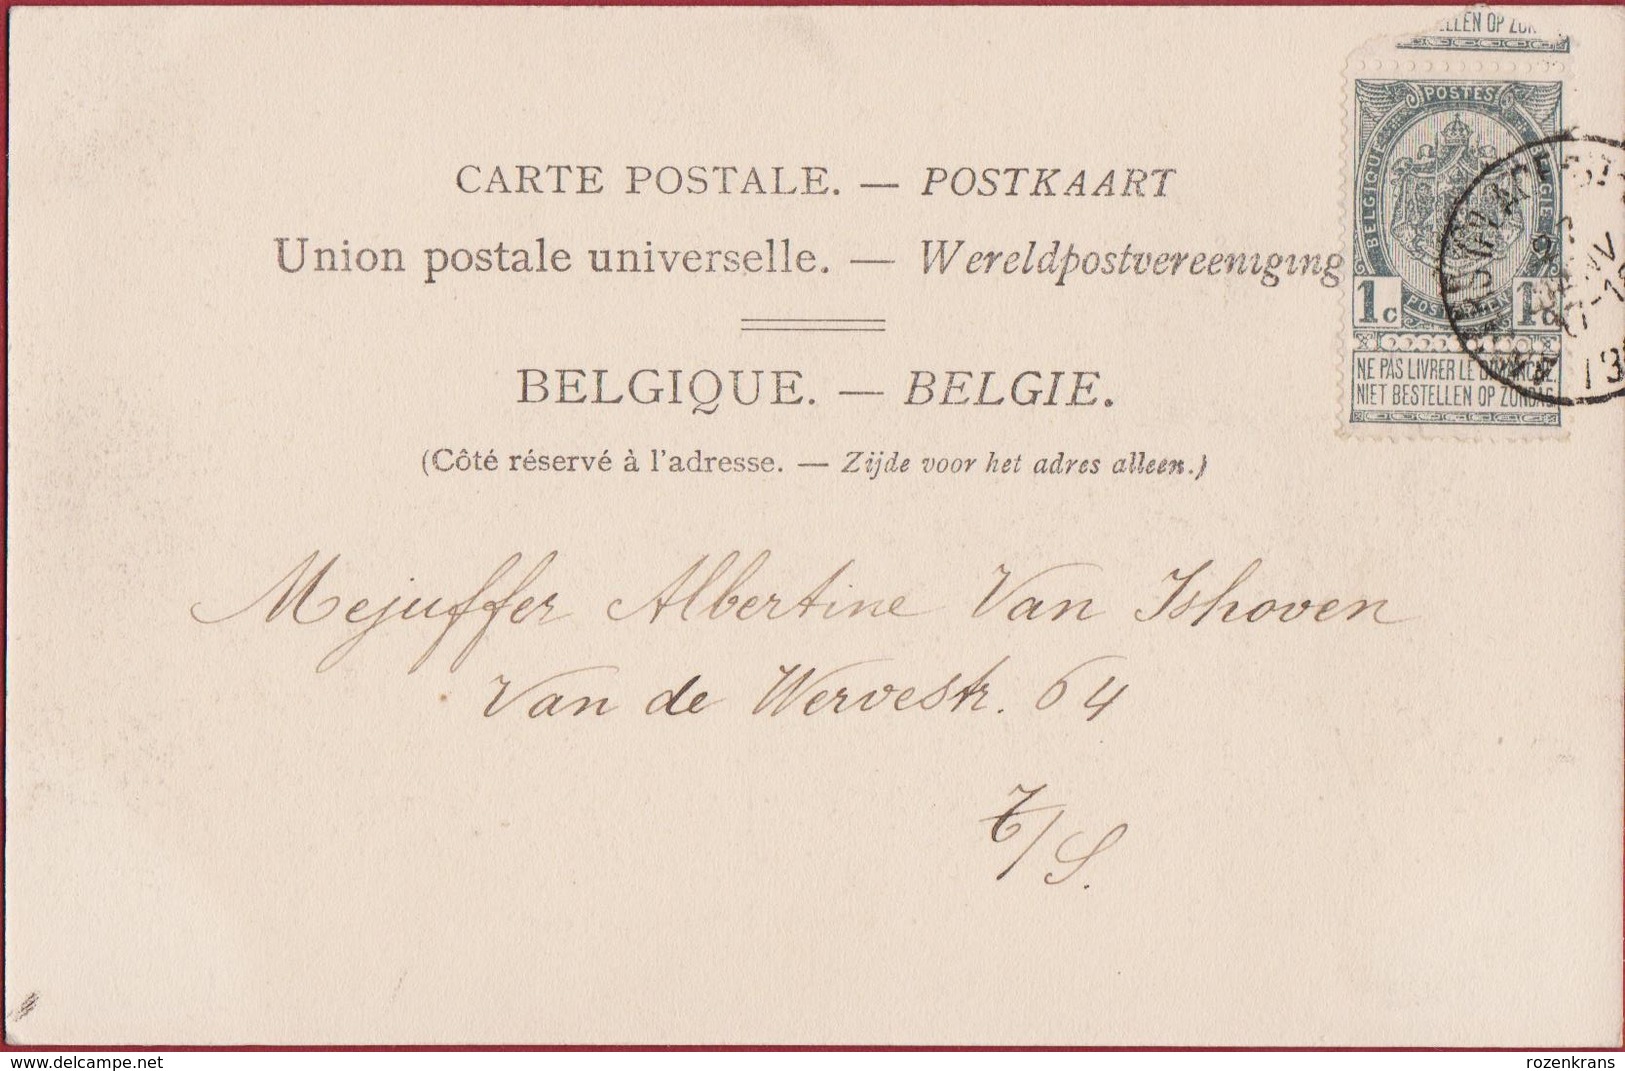 ELLEN OP ZON
POSTES
BELGIQUE BELGIE
CARTE POSTALE. — POSTKAART
Union postale universelle. — Wereldpostvereeniging
1c POSTERIJEN 1c
BELGIQUE. — BELGIE.
NE PAS LIVRER LE DIMANCHE.
NIET BESTELLEN OP ZONDAG.
(Côté réservé à l'adresse. — Zijde voor het adres alleen.)
Mejuffer Albertine Van Ishoven
Van de Wervestr. 64
T/S.
www.delcampe.net
rozenkrans